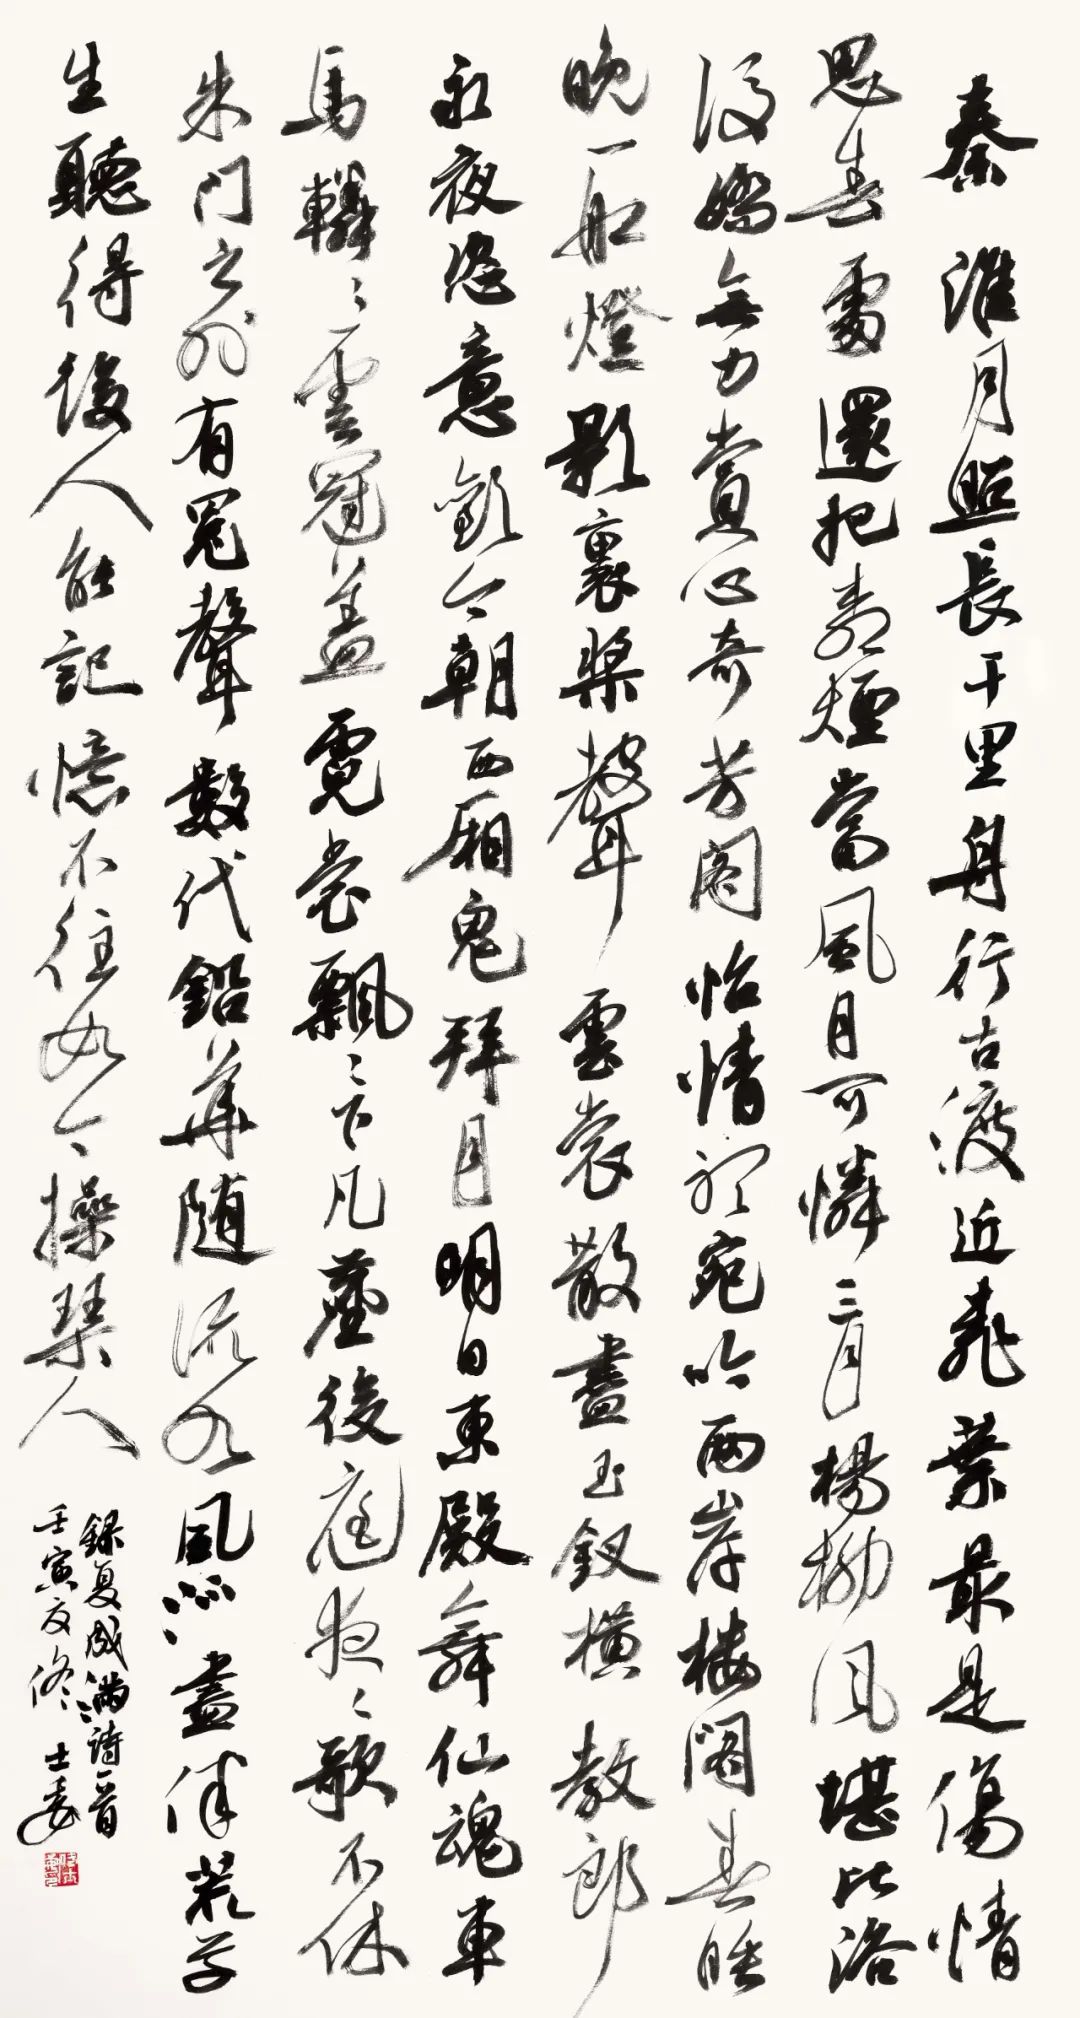 秦淮月照長干里舟行古渡近桃葉最是傷情
思春處還把翠煙當風月可憐三月楊柳風堪比洛
浮嬌無力賞心奇芳閣怡情訴宛吟兩岸樓閣春睡
晚一船燈影裏槳聲雲裳散盡玉釵橫教郎
永夜恣意歡今朝西厢鬼拜月明日東殿舞仙魂車
馬轔轔雲冠蓋霓裳飄飄下凡塵後庭夜夜歌不休
朱门之外有冤聲數代鉛華随流水風流盡伴荒草
生聽得後人能記憶不住如今操琴人
錄夏成满詩一首
壬寅友修士奇